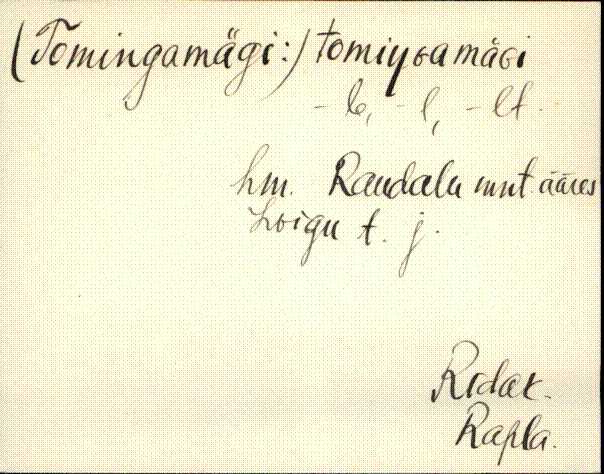 (Tomingamägi:) tomiŋɢamäɢi
-le, -l, -lt.
hm. Raudalu mnt ääres
Loigu t. j.
Ridak.
Rapla.